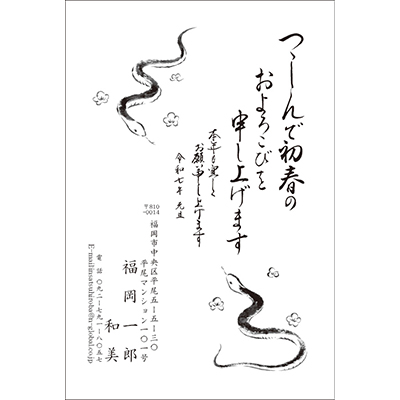 つゝしんで初春の
およろこびを
申し上げます
本年も宜しく
お願い申し上げます
令和七年 元旦
〒810
-0014
福岡市中央区平尾五-五-三〇
平尾マンション一〇一号
福岡一郎
和美
電話 〇九二-七九一-八〇五七
E-mailinsatsuhiroba@n-global.co.jp